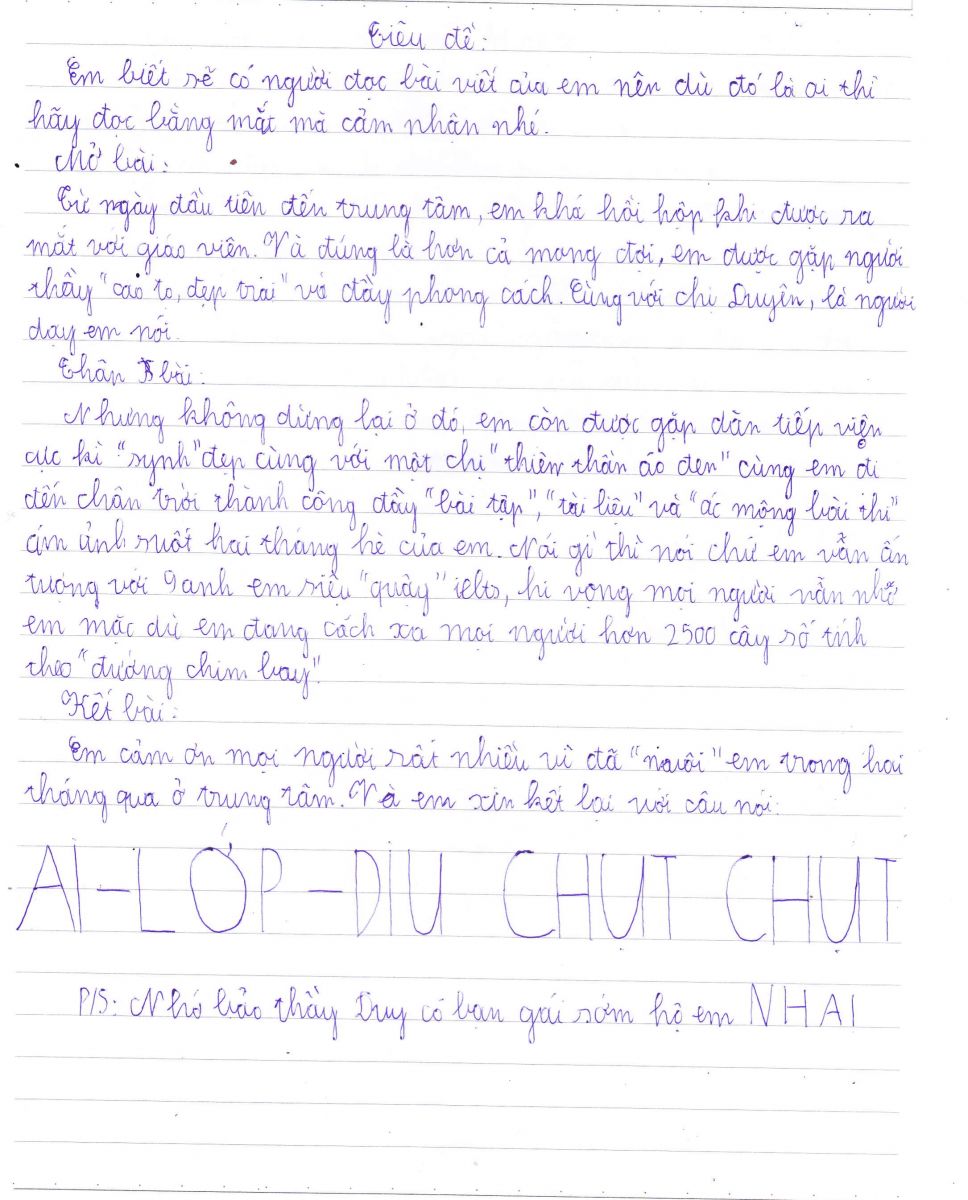 Tiêu đề:
Em biết sẽ có người đọc bài viết của em nên dù đó là ai thì
hãy đọc bằng mắt mà cảm nhận nhé.
Mở bài:
Từ ngày đầu tiên đến trung tâm, em khá hồi hộp khi được ra
mắt với giáo viên. Và đúng là hơn cả mong đợi, em được gặp người
thầy "cao to, đẹp trai" và đầy phong cách. Cùng với chị Duyên, là người
dạy em nói.
Thân bài:
Nhưng không dừng lại ở đó, em còn được gặp dàn tiếp viện
cực kì "synh" đẹp cùng với một chị "thiên thần áo đen" cùng em đi
đến chân trời thành công đầy "bài tập", "tài liệu" và "ác mộng bài thi"
ám ảnh suốt hai tháng hè của em. Nói gì thì nói chứ em vẫn ấn
tượng với 9 anh em siêu "quậy" ielts, hi vọng mọi người vẫn nhớ
em mặc dù em đang cách xa mọi người hơn 2500 cây số tính
theo "đường chim bay".
Kết bài:
Em cảm ơn mọi người rất nhiều vì đã "nuôi" em trong hai
tháng qua ở trung tâm. Và em xin kết lại với câu nói:
AI-LỚP-DIU CHỤT CHỤT
P/S: Nhớ bảo thầy Duy có bạn gái sớm hộ em NHA!